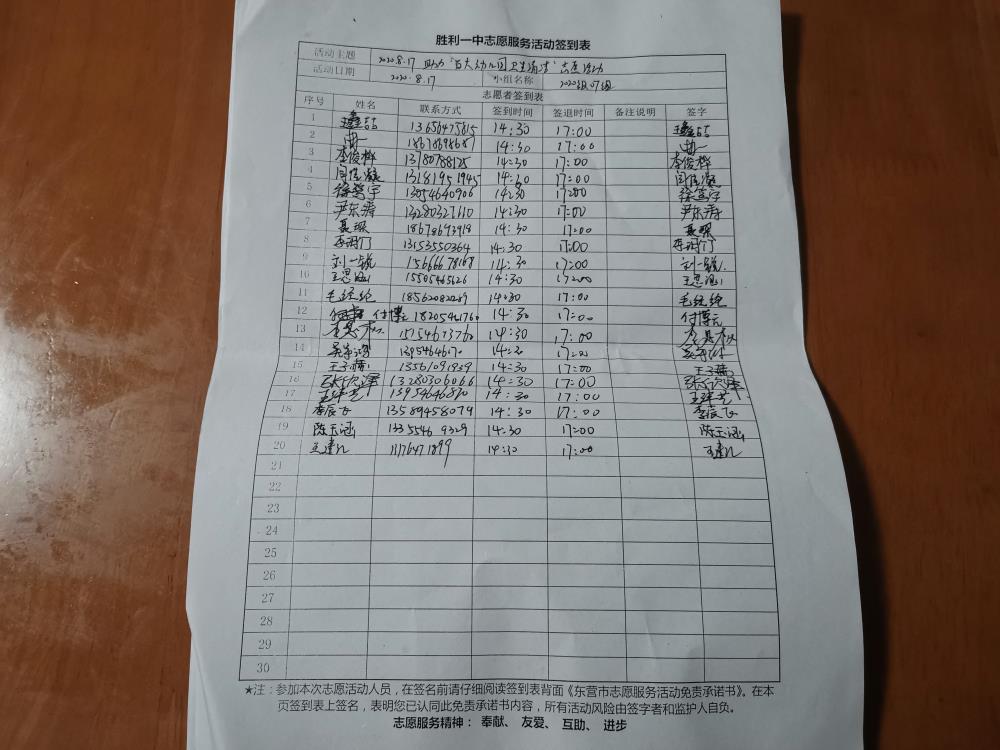 胜利一中志愿服务活动签到表
活动主题 2020.8.17 助力"百大幼儿园卫生清洁"志愿活动
活动日期 2020.8.17 小组名称 2020级07组
志愿者签到表
序号 姓名 联系方式 签到时间 签退时间 备注说明 签字
1 13656475815 14:30 17:00
2 曲一 18678698687 14:30 17:00 曲一
3 李俊桦 13780788125 14:30 17:00 李俊桦
4 闫佳凝 13181951945 14:30 17:00 闫佳凝
5 徐筥宇 13054640906 14:30 17:00 徐筥宇
6 尹东涛 13280327110 14:30 17:00 尹东涛
7 聂琛 18678693918 14:30 17:00 聂琛
8 13153550364 14:30 17:00
9 刘一锐 15666678168 14:30 17:00 刘一锐
10 王思涵 15505465626 14:30 17:00 王思涵
11 毛纯纯 18562082289 14:30 17:00 毛纯纯
12 付博元 18205461760 14:30 17:00 付博元
13 14:30 17:00
14 14:30 17:00
15 13561091939 14:30 17:00
16 张欣泽 13280306066 14:30 17:00 张欣泽
17 15954646810 14:30 17:00
18 李辰飞 13589458079 14:30 17:00 李辰飞
19 陈玉涵 1335546 9329 14:30 17:00 陈玉涵
20 14:30 17:00
21
22
23
24
25
26
27
28
29
30
★注：参加本次志愿活动人员，在签名前请仔细阅读签到表背面《东营市志愿服务活动免责承诺书》。在本
页签到表上签名，表明您已认同此免责承诺书内容，所有活动风险由签字者和监护人自负。
志愿服务精神：奉献、友爱、互助、进步